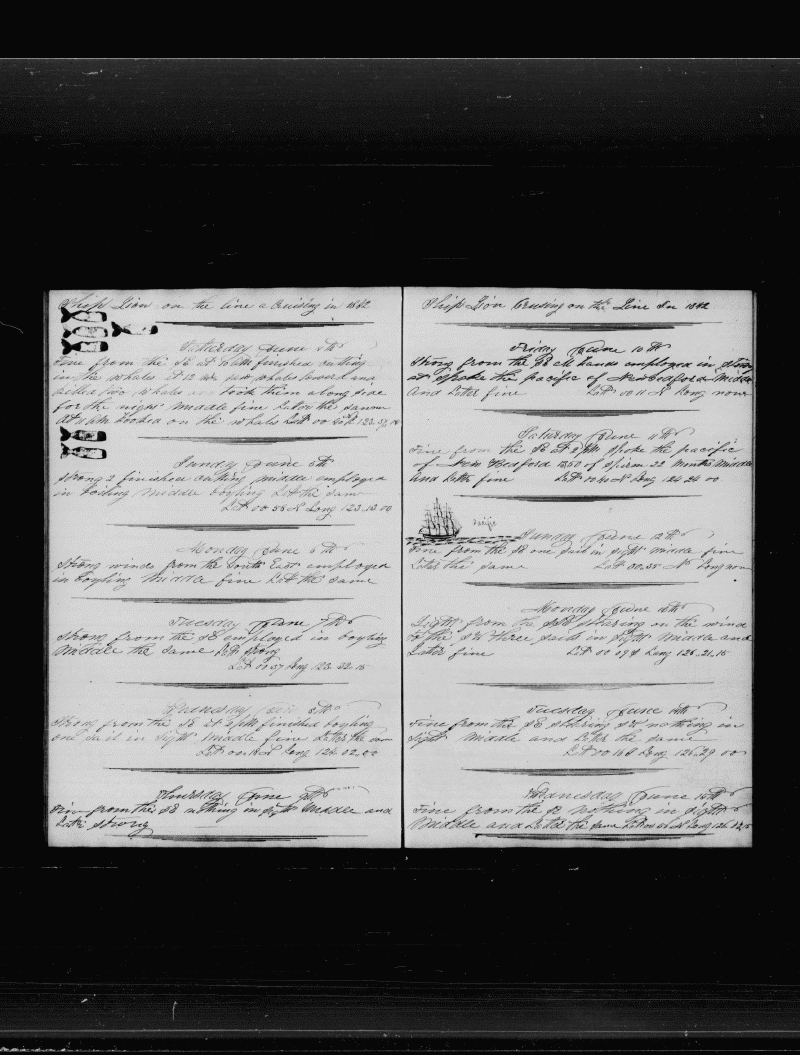 Ship Lion on the line a Cruising in 1842
Saturday June 4th
Fine from the SE at 10 AM finished cutting
in the whales at 12 saw whales lowered and
killed two whales took them along side
for the night Middle fine Later the same
At 11 AM hooked on the whales Latt 00 Long 123.37.15
Sunday June 5th
Strong finished cutting middle employed
in boiling Middle boyling Latt the same
Latt 00 56 N Long 123.13.00
Monday June 6th
Strong winds from the South East employed
in boyling Middle fine Latt the same
Tuesday June 7th
Strong from the SE employed in boyling
Middle the same Latt Strong
Latt 00 57 Long 123.32.15
Wednesday June 8th
Strong from the SE at PM finished boyling
one sail in sight Middle fine Later the same
Latt 00 Long 124.02.00
Thursday June 9th
Fine from the SE nothing in sight Middle and
Latt Strong
Ship Lion Crusing on the Line In 1842
Friday June 10th
Strong from the SE all hands employed in
at spoke the pacific of New Bedford Middle
And Later fine Latt 00 11 N Long none
Saturday June 11th
Fine from the SE at PM spoke the pacific
of New Bedford 1350 of Spirm 22 months Middle
and Latter fine Latt 00 40 N Long 124 24 00
Pacific
Sunday June 12th
Fine from the SE one sail in sight middle fine
Later the same Latt 00.35 N Long none
Monday June 13th
Light from the stearing on the wind
to the SW three sails in sight Middle and
Later fine Latt 00 09 S Long 125.21.15
Tuesday June 14th
Fine from the SE stearing SW nothing in
sight Middle and Later the same
Latt 00 16 S Long 125.29 00
Wednesday June 15th
Fine from the SE nothing in sight
Middle and Later the same Latt 00 N Long 126